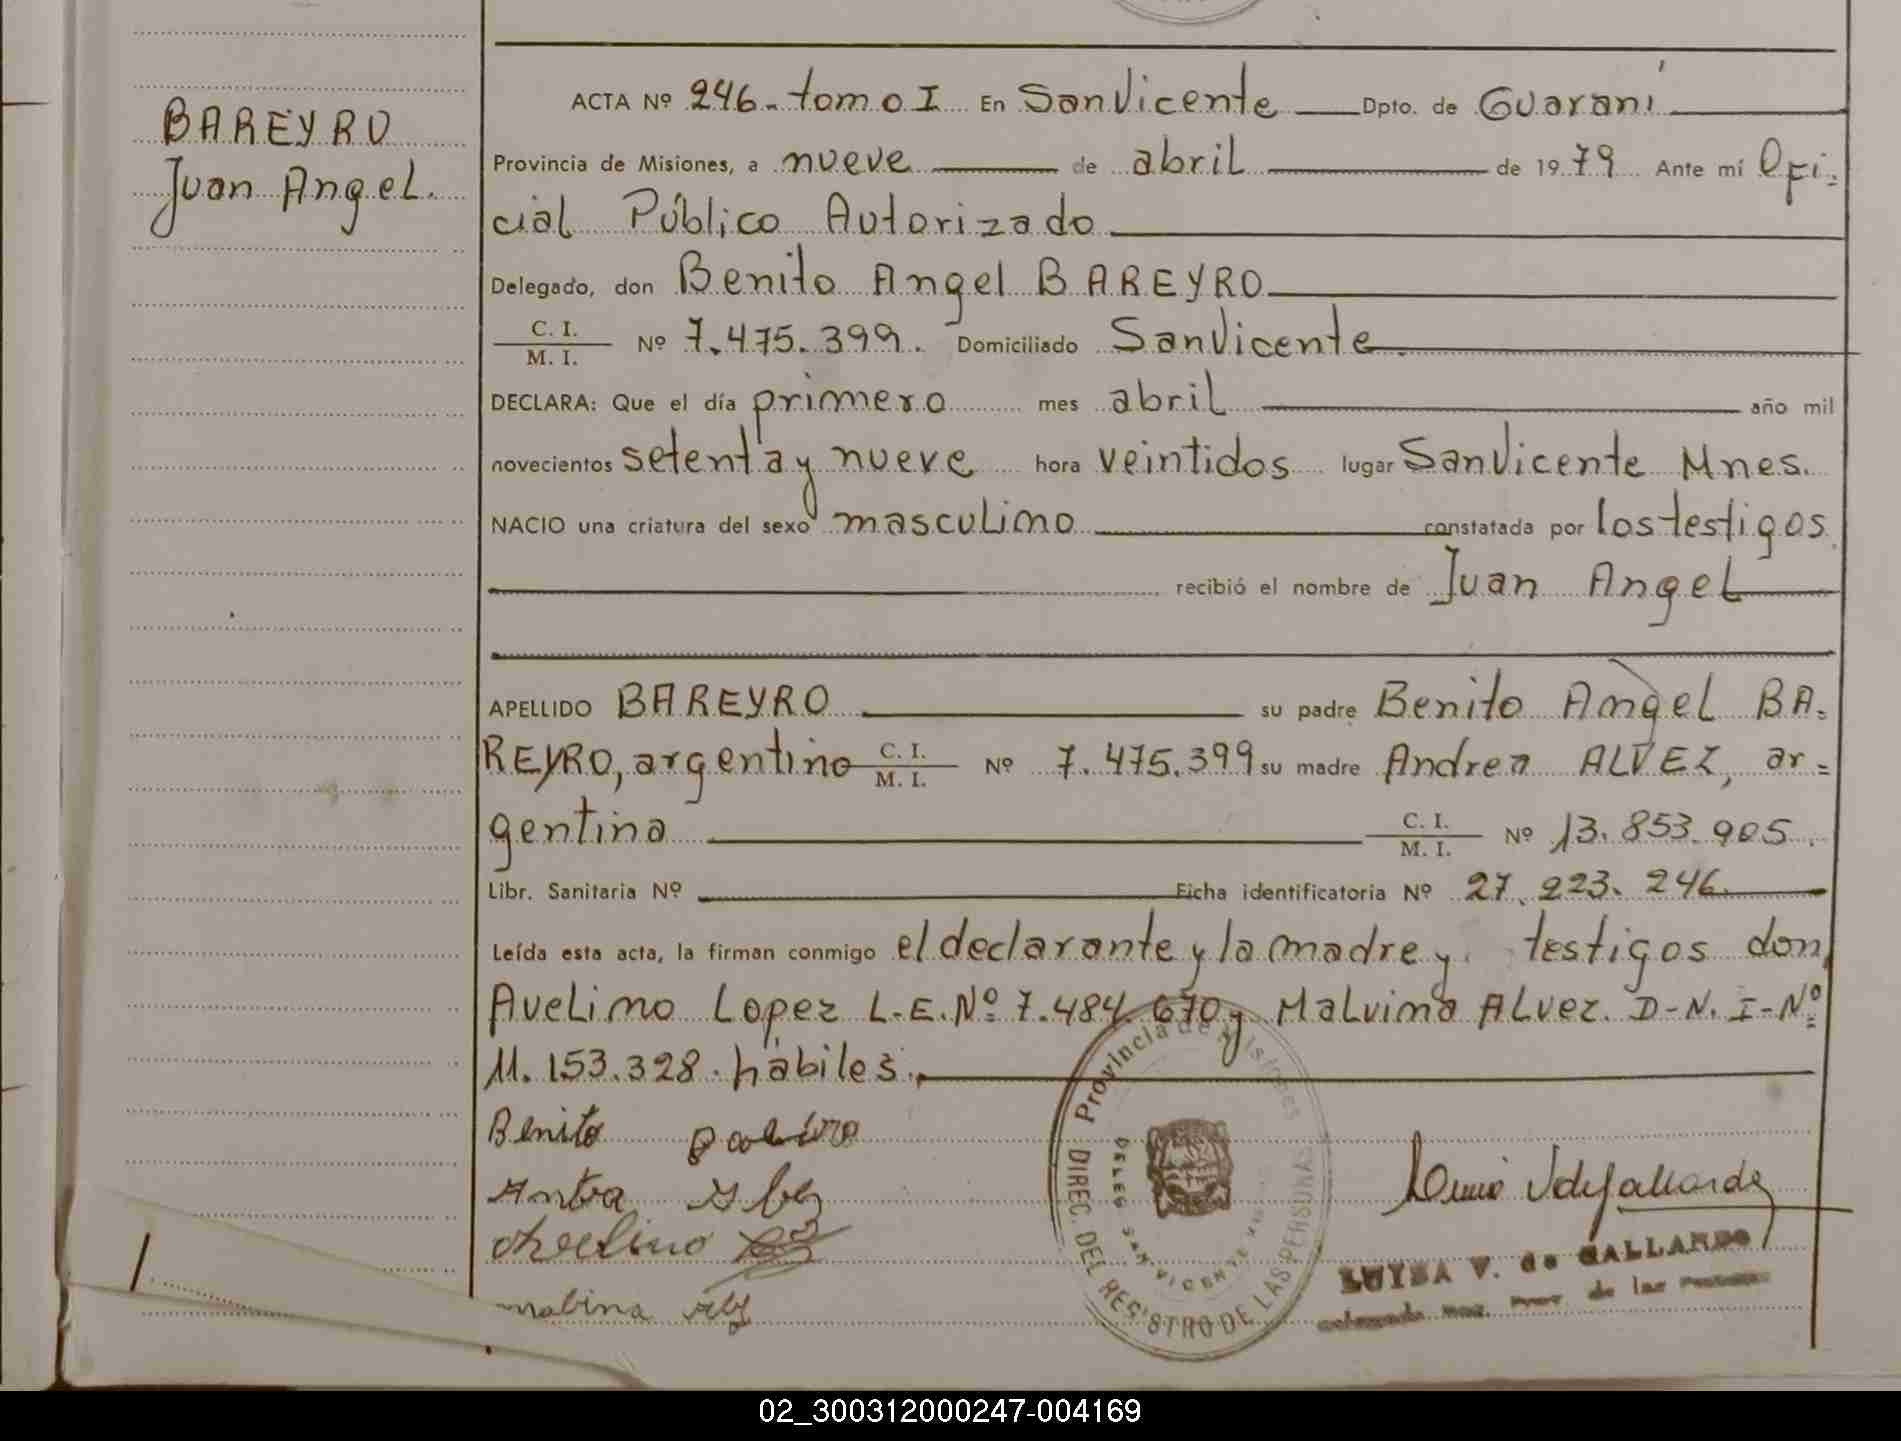 BAREYRO
Juan Angel.
ACTA Nº 246 - tomo I En San Vicente Dpto. de Guaraní
Provincia de Misiones, a nueve de abril de 1979 Ante mí Ofi-
cial Público Autorizado
Delegado, don Benito Angel BAREYRO
C. I.
M. I. Nº 7.475.399. Domiciliado San Vicente
DECLARA: Que el día primero mes abril año mil
novecientos setenta y nueve hora veintidos lugar San Vicente Mnes.
NACIO una criatura del sexo masculino constatada por los testigos
recibió el nombre de Juan Angel
APELLIDO BAREYRO su padre Benito Angel BA-
REYRO, argentino C. I. M. I. Nº 7.475.399 su madre Andrea ALVEZ, ar-
gentina C. I. M. I. Nº 13.853.905.
Libr. Sanitaria Nº Ficha identificatoria Nº 27.223.246
Leída esta acta, la firman conmigo el declarante y la madre y testigos don
Avelino Lopez L.E.Nº 7.484.670 y Malvina ALvez. D-N.I-Nº
11.153.328. hábiles.
Benito
Provincia de Misiones
DIREC. DEL REGISTRO DE LAS PERSONAS
DELEG. SAN VICENTE
LUYSA V. de GALLARDO
02_300312000247-004169